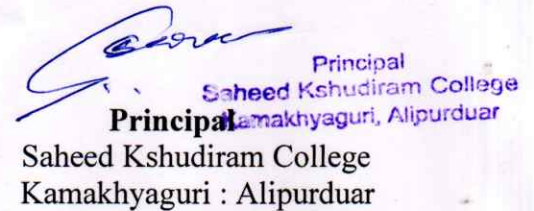 Principal
Saheed Kshudiram College
Kamakhyaguri, Alipurduar
Principal
Saheed Kshudiram College
Kamakhyaguri : Alipurduar